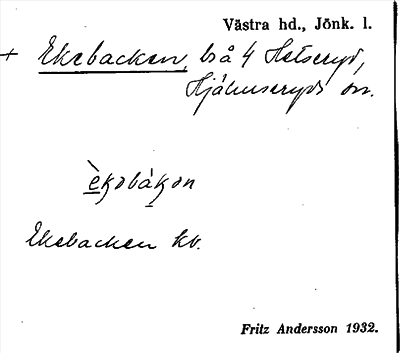 Västra hd., Jönk. l.
+ Ekebacken, bså 4 Hetseryd,
Hjälmseryds sn.
èkəbákən
Ekebacken kv.
Fritz Andersson 1932.